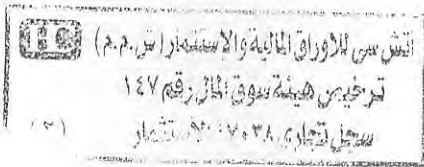 HC
اتش سي للاوراق المالية والاستثمار (ش.م.م)
ترخيص هيئة سوق المال رقم ١٤٧
سجل تجاري استثمار
(٢)